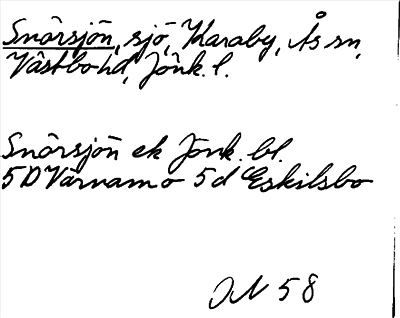 Snörsjön, sjö, Karaby, Ås sn,
Västbo hd, Jönk. l.
Snörsjön ek Jönk. bl.
5D Värnamo 5d Eskilsbo
58